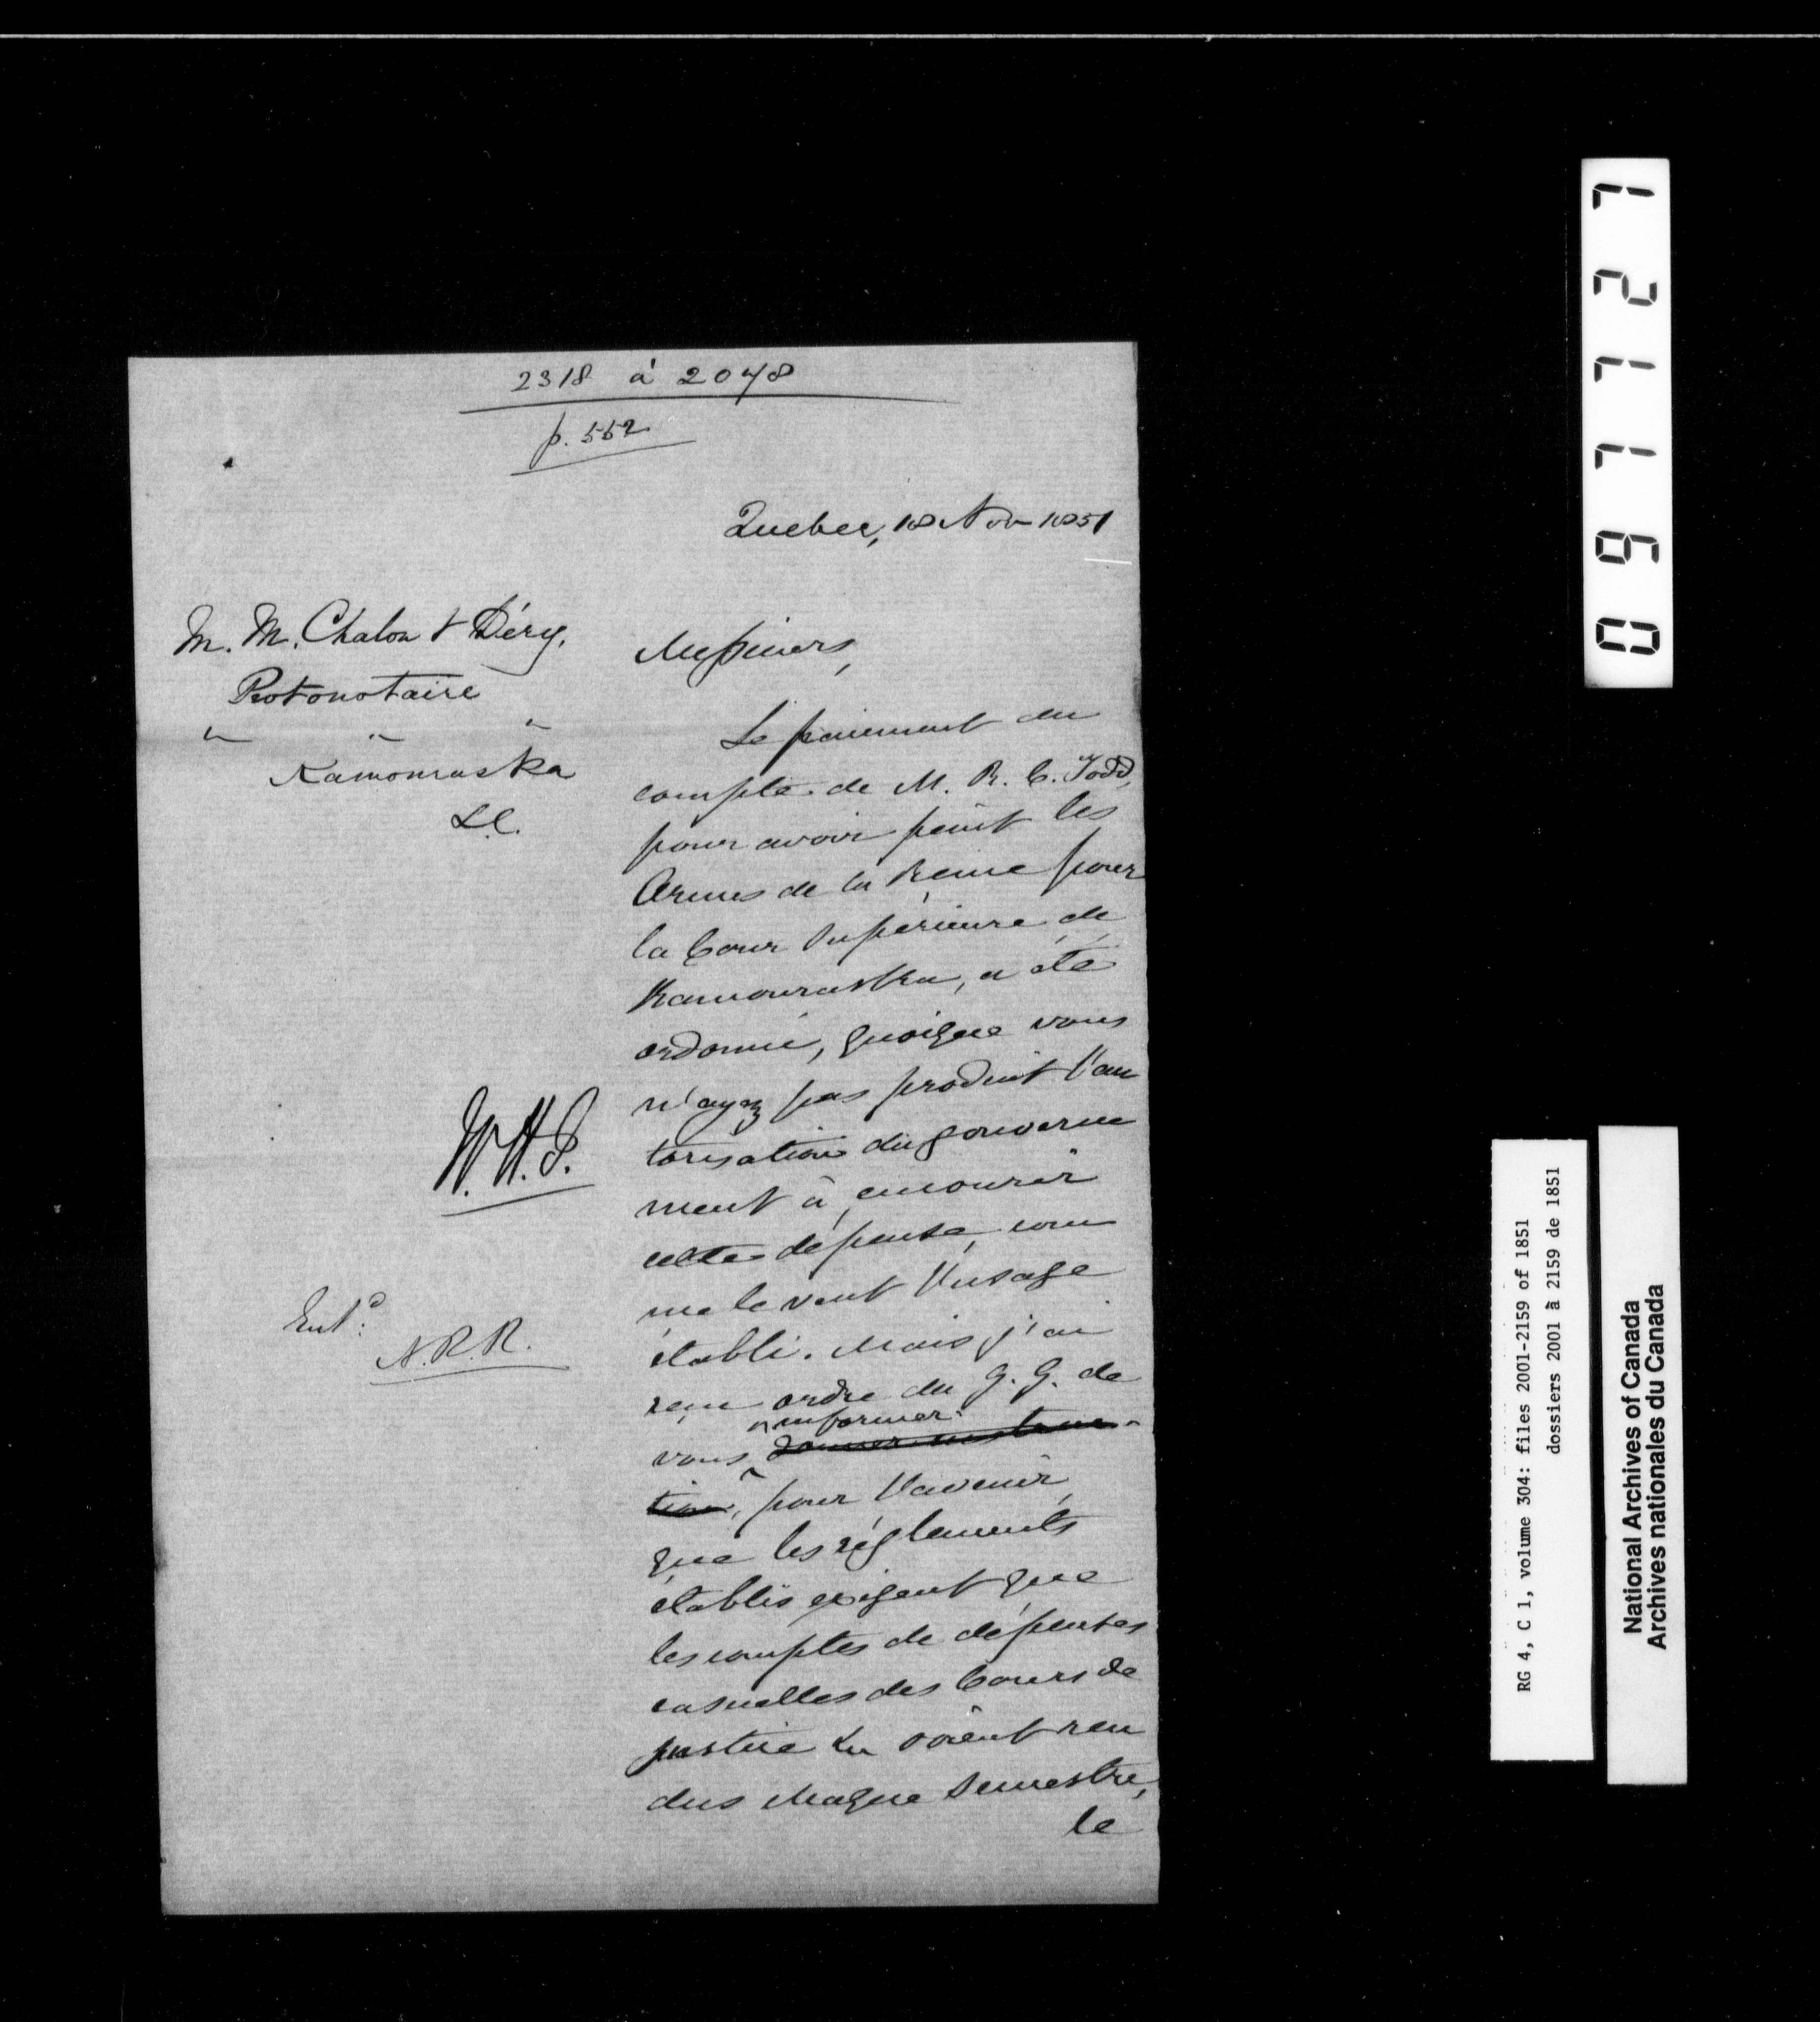 2318 à 2048
p. 552
Quebec, 18 Nov 1851
M. M. Chalou & Déry,
Protonotaire
" " "
Kamouraska
L.C.
Messieurs,
Le paiement du
compte de M. R. C. Todd,
pour avoir peint les
Armes de la Reine pour
la Cour Supérieure de
Kamouraska, a été
ordonné, quoique vous
n'ayez pas produit l'au
torisation du gouverne
ment à encourir
cette dépense, com
me le veut l'usage
établi. Mais j'ai
reçu ordre du G. G. de
informer
vous donner instruc-
tion, pour l'avenir,
que les réglements
établis exigent que
les comptes de dépenses
casuelles des Cours de
justice du soient ren
dus chaque semestre,
le
W.H.P.
Ent.d
A.R.R.
097127
RG 4, C 1, volume 304: files 2001-2159 of 1851
dossiers 2001 à 2159 de 1851
National Archives of Canada
Archives nationales du Canada